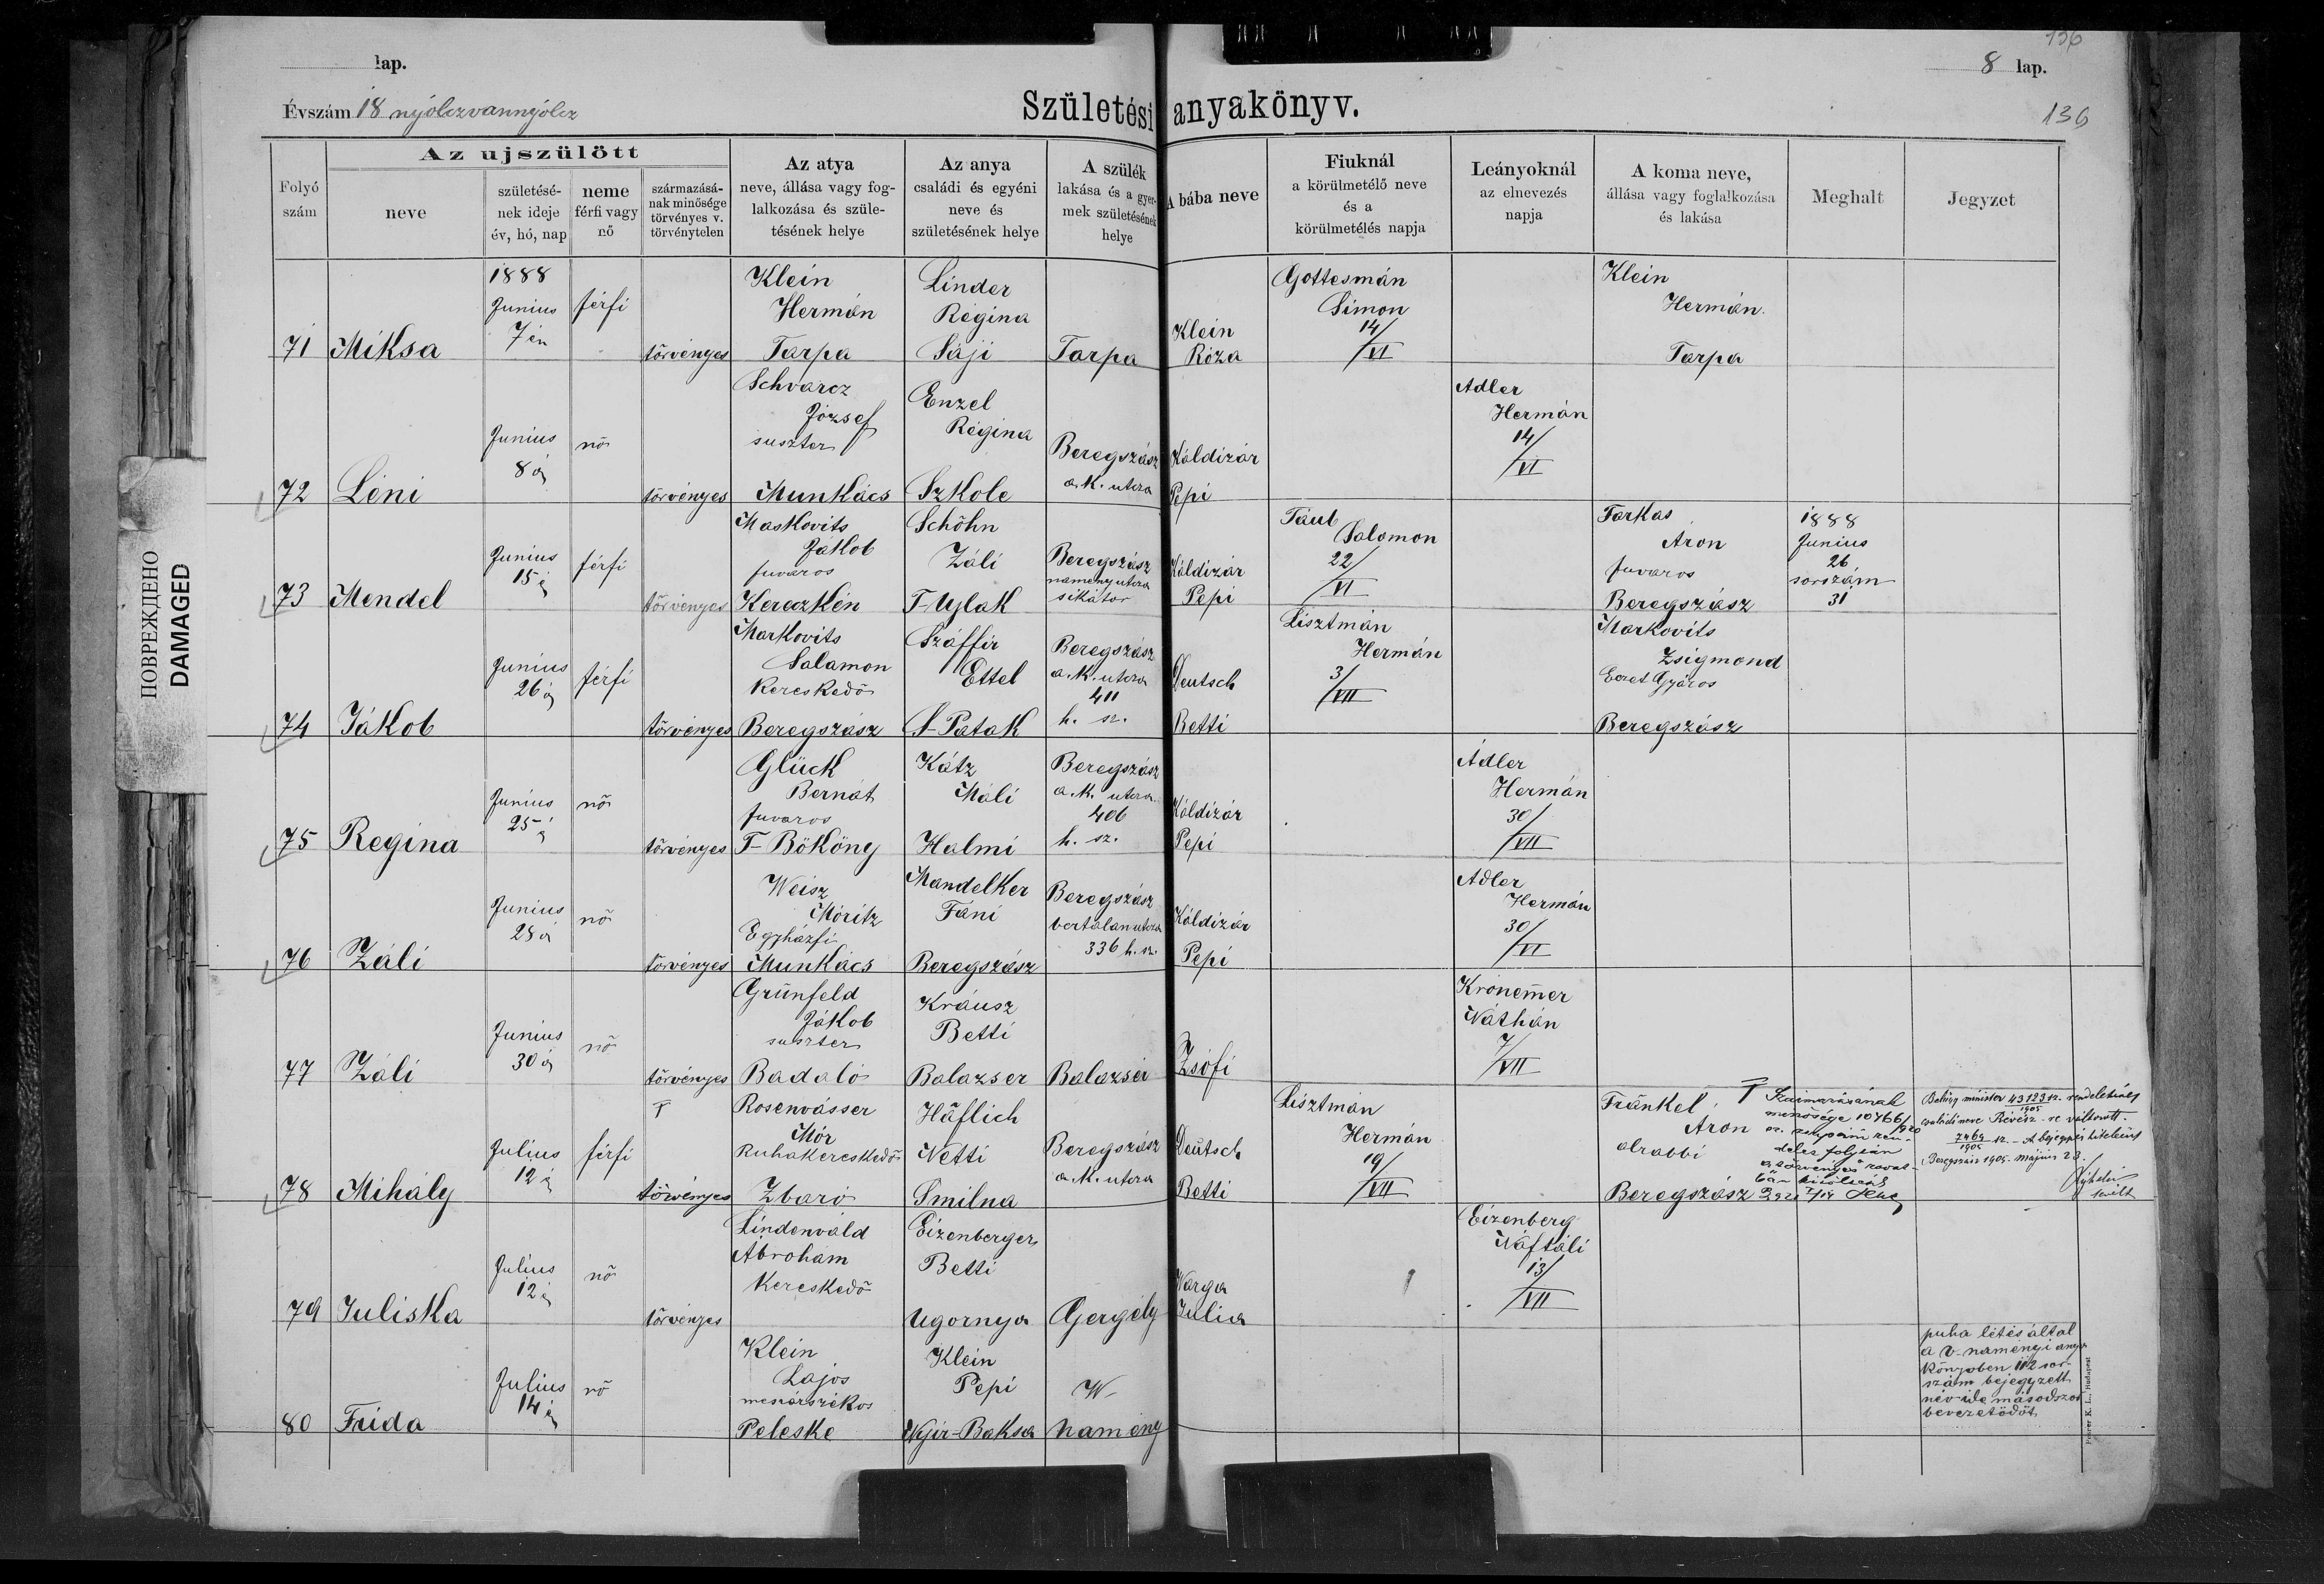 136
lap.
8 lap.
Évszám 18 nyólczvannyólcz
Születési anyakönyv.
136
Az ujszülött
Folyó szám
neve
születésé-
nek ideje
év, hó, nap
neme
férfi vagy
nő
származásá-
nak minősége
törvényes v.
törvénytelen
Az atya
neve, állása vagy fog-
lalkozása és szüle-
tésének helye
Az anya
családi és egyéni
neve és
születésének helye
A szülék
lakása és a gyer-
mek születésének
helye
A bába neve
Fiuknál
a körülmetélő neve
és a
körülmetélés napja
Leányoknál
az elnevezés
napja
A koma neve,
állása vagy foglalkozása
és lakása
Meghalt
Jegyzet
71
Miksa
1888
Junius
7 én
férfi
törvényes
Klein
Hermán
Tarpa
Linder
Régina
Sáji
Tarpa
Klein
Róza
Gottesmán
Simon
14/VI
Klein
Hermán.
Tarpa
72
Léni
Junius
8 á
nő
törvényes
Schvarcz
József
suszter
Munkács
Enzel
Régina
Szkole
Beregszász
a. K. utcza
Káldizár
Pepi
Adler
Hermán
14/VI
73
Mendel
Junius
15 é
férfi
törvényes
Maskovits
Jákob
fuvaros
Kereczkén
Schöhn
Záli
T-Ujlak
Beregszász
namény utcza
sikátor
Káldizár
Pepi
Taub
Salomon
22/VI
Farkas
Áron
fuvaros
Beregszász
1888
Junius
26
sorszám
31
74
Jákob
Junius
26 á
férfi
törvényes
Markovits
Salamon
Kereskedő
Beregszász
Száffir
Ettel
S-Patak
Beregszász
a. K. utcza
411
h. sz.
Deutsch
Betti
Lisztmán
Hermán
3/VII
Markovits
Zsigmond
Eczet Gyáros
Beregszász
75
Regina
Junius
25 é
nő
törvényes
Glück
Bernát
fuvaros
T-Bököny
Kátz
Máli
Halmi
Beregszász
a. K. utcza
406
h. sz.
Káldizár
Pepi
Adler
Hermán
30/VII
76
Záli
Junius
28 á
nő
törvényes
Weisz
Móritz
Egyházfi
Munkács
Mandelker
Fáni
Beregszász
Beregszász
bertalan utcza
336 h. sz.
Káldizár
Pepi
Adler
Hermán
30/VI
77
Záli
Junius
30 á
nő
törvényes
Grünfeld
Jákob
suszter
Badaló
Kráusz
Betti
Balazser
Balazsér
Zsófi
Kronemer
Náthán
7/VII
78
Mihály
Julius
12 é
férfi
törvényes
Rosenvásser
Mór
Ruhakereskedő
Zbaró
Häflich
Netti
Smilna
Beregszász
a. K. utcza
Deutsch
Betti
Lisztmán
Hermán
19/VII
Fränkel
Áron
alrabbi
Beregszász
Származásának
minősége 10766/920
folyián
Belügyminister 43123 sz. rendeletével
1905
családi neve Révész-re változott.
7464 sz. - A bejegyzés hiteléül
1905
Beregszász 1905. május 23.
79
Juliska
Julius
12 é
nő
törvényes
Lindenváld
Abroham
Kereskedő
Eizenberger
Betti
Ugornya
Gergély
Varga
Julia
Eizenberg
Náftáli
13/VII
80
Frida
Julius
14 é
nő
Klein
Lajos
mészárszékos
Peleske
Klein
Pepi
Nyir-Baksa
V-
Namény
puha létés által
a V-naményi anya
könyvben 112 sor
szám bejegyzett
név ide másodszor
bevezetődőt
Fehrer K. L., Budapest
ПОВРЕЖДЕНО
DAMAGED